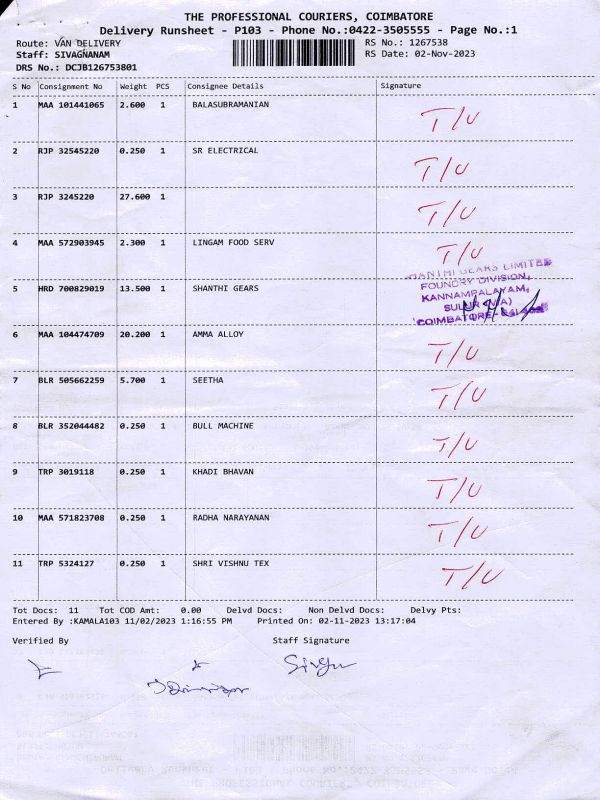 THE PROFESSIONAL COURIERS, COIMBATORE
Delivery Runsheet - P103 - Phone No.:0422-3505555 - Page No.:1
Route: VAN DELIVERY RS No.: 1267538
Staff: SIVAGNANAM RS Date: 02-Nov-2023
DRS No.: DCJB126753801
S No Consignment No Weight PCS Consignee Details Signature
1 MAA 101441065 2.600 1 BALASUBRAMANIAN T/U
2 RJP 32545220 0.250 1 SR ELECTRICAL T/U
3 RJP 3245220 27.600 1 T/U
4 MAA 572903945 2.300 1 LINGAM FOOD SERV T/U
SHANTHI GEARS LIMITED
FOUNDRY DIVISION,
5 HRD 700829019 13.500 1 SHANTHI GEARS KANNAMPALAYAM,
SULUR (VIA)
COIMBATORE -
6 MAA 104474709 20.200 1 AMMA ALLOY T/U
7 BLR 505662259 5.700 1 SEETHA T/U
8 BLR 352044482 0.250 1 BULL MACHINE T/U
9 TRP 3019118 0.250 1 KHADI BHAVAN T/U
10 MAA 571823708 0.250 1 RADHA NARAYANAN T/U
11 TRP 5324127 0.250 1 SHRI VISHNU TEX T/U
Tot Docs: 11 Tot COD Amt: 0.00 Delvd Docs: Non Delvd Docs: Delvy Pts:
Entered By :KAMALA103 11/02/2023 1:16:55 PM Printed On: 02-11-2023 13:17:04
Verified By Staff Signature